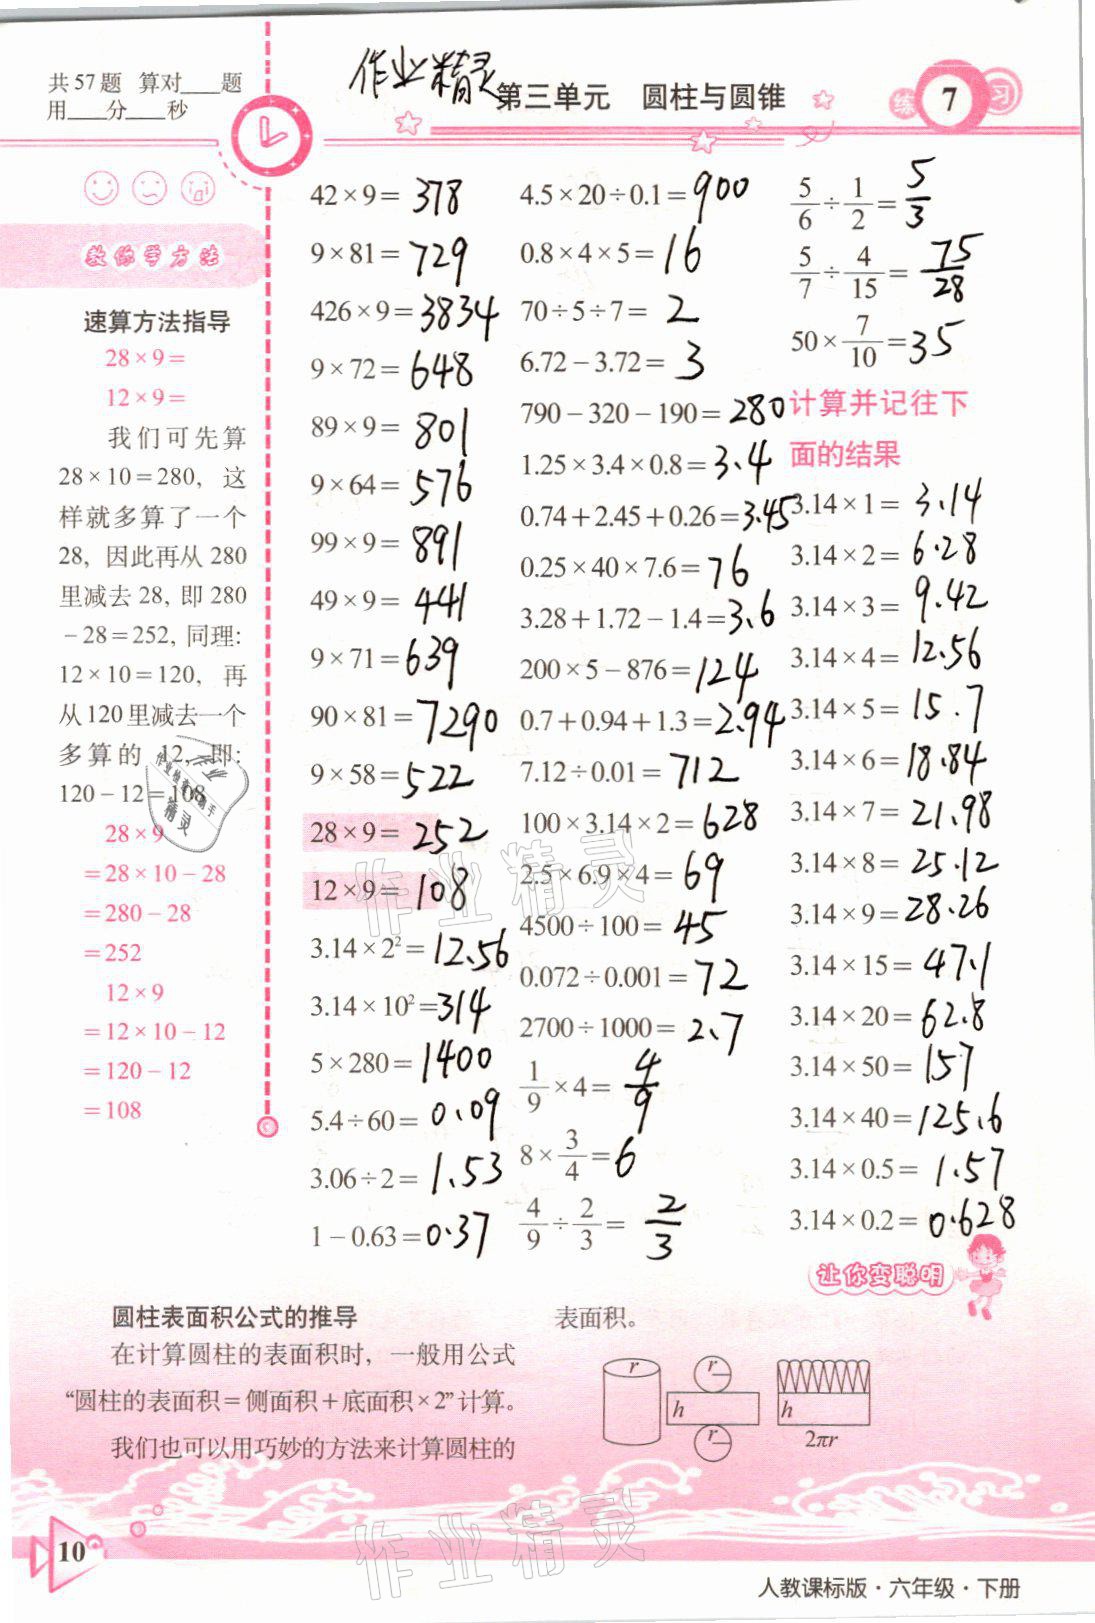 共57题 算对___题
用___分___秒
作业精灵
第三单元 圆柱与圆锥
练 7 习
教你学方法
速算方法指导
28×9=
12×9=
我们可先算
28×10=280, 这
样就多算了一个
28, 因此再从 280
里减去 28, 即 280
-28=252, 同理:
12×10=120, 再
从120里减去一个
多算的 12, 即:
120-12=108
28×9
=28×10-28
=280-28
=252
12×9
=12×10-12
=120-12
=108
42×9=378
9×81=729
426×9=3834
9×72=648
89×9=801
9×64=576
99×9=891
49×9=441
9×71=639
90×81=7290
9×58=522
28×9=252
12×9=108
3.14×2²=12.56
3.14×10²=314
5×280=1400
5.4÷60=0.09
3.06÷2=1.53
1-0.63=0.37
4.5×20÷0.1=900
0.8×4×5=16
70÷5÷7=2
6.72-3.72=3
790-320-190=280
1.25×3.4×0.8=3.4
0.74+2.45+0.26=3.45
0.25×40×7.6=76
3.28+1.72-1.4=3.6
200×5-876=124
0.7+0.94+1.3=2.94
7.12÷0.01=712
100×3.14×2=628
2.5×6.9×4=69
4500÷100=45
0.072÷0.001=72
2700÷1000=2.7
1/9×4=4/9
8×3/4=6
4/9÷2/3=2/3
5/6÷1/2=5/3
5/7÷4/15=75/28
50×7/10=35
计算并记往下
面的结果
3.14×1=3.14
3.14×2=6.28
3.14×3=9.42
3.14×4=12.56
3.14×5=15.7
3.14×6=18.84
3.14×7=21.98
3.14×8=25.12
3.14×9=28.26
3.14×15=47.1
3.14×20=62.8
3.14×50=157
3.14×40=125.6
3.14×0.5=1.57
3.14×0.2=0.628
让你变聪明
圆柱表面积公式的推导
在计算圆柱的表面积时, 一般用公式
“圆柱的表面积=侧面积+底面积×2”计算。
我们也可以用巧妙的方法来计算圆柱的
表面积。
r
r
h
r
h
2πr
作业精灵
作业精灵
10
人教课标版·六年级·下册